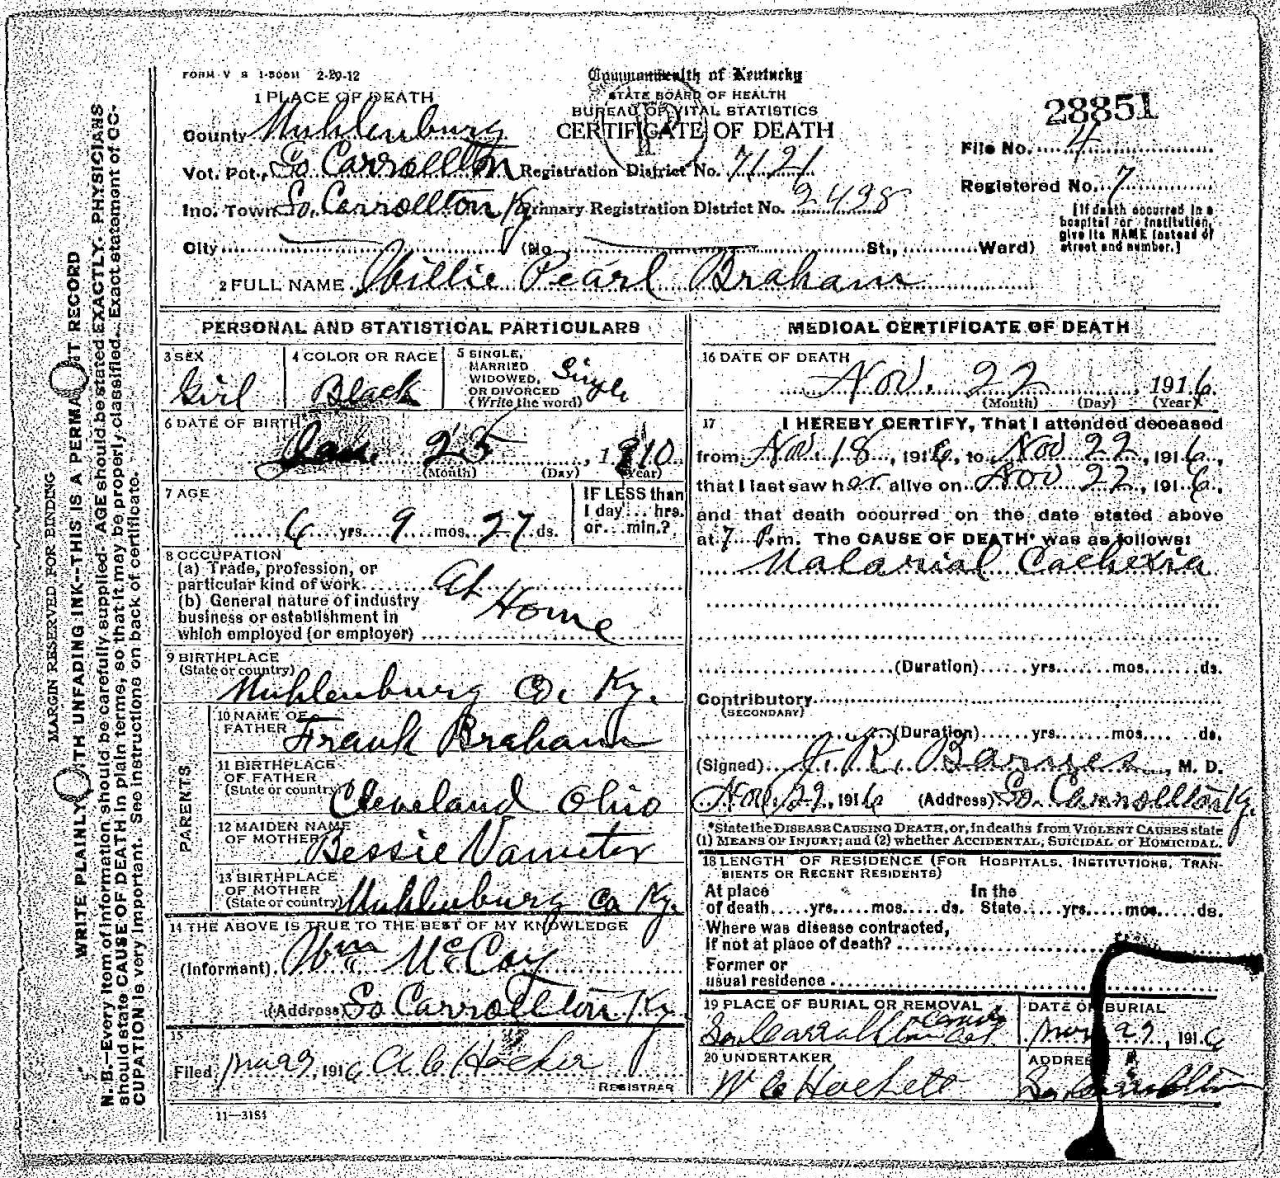 FORM V S 1-50011 2-29-12
Commonwealth of Kentucky
STATE BOARD OF HEALTH
BUREAU OF VITAL STATISTICS
CERTIFICATE OF DEATH
28851
File No. 4
Registered No. 7
[If death occurred in a hospital or institution, give its NAME instead of street and number.]
1 PLACE OF DEATH
County Muhlenburg
Vot. Pct., So Carrollton Registration District No. 7121
Inc. Town So. Carrollton Ky Primary Registration District No. 2498
City (No. St., Ward)
2 FULL NAME Willie Pearl Braham
PERSONAL AND STATISTICAL PARTICULARS
3 SEX Girl
4 COLOR OR RACE Black
5 SINGLE, MARRIED WIDOWED, OR DIVORCED (Write the word) Single
6 DATE OF BIRTH Jan. 25, 1910
(Month) (Day) (Year)
7 AGE
6 yrs. 9 mos. 27 ds.
IF LESS than 1 day ... hrs. or ... min.?
8 OCCUPATION
(a) Trade, profession, or particular kind of work At Home
(b) General nature of industry business or establishment in which employed (or employer)
9 BIRTHPLACE
(State or country)
Muhlenburg Co. Ky.
PARENTS
10 NAME OF FATHER Frank Braham
11 BIRTHPLACE OF FATHER (State or country) Cleveland Ohio
12 MAIDEN NAME OF MOTHER Bessie Vanmeter
13 BIRTHPLACE OF MOTHER (State or country) Muhlenburg Co Ky.
14 THE ABOVE IS TRUE TO THE BEST OF MY KNOWLEDGE
(Informant) Wm McCoy
(Address So Carrollton Ky
15
Filed 1916 A. C. Hocker
REGISTRAR
11—3184
MEDICAL CERTIFICATE OF DEATH
16 DATE OF DEATH
Nov. 22, 1916
(Month) (Day) (Year)
17 I HEREBY CERTIFY, That I attended deceased
from Nov. 18, 1916, to Nov 22, 1916,
that I last saw her alive on Nov 22, 1916,
and that death occurred on the date stated above
at 7 P.m. The CAUSE OF DEATH* was as follows:
Malarial Cachexia
(Duration) yrs. mos. ds.
Contributory
(SECONDARY)
(Duration) yrs. mos. ds.
(Signed) J. R. Barnes, M. D.
Nov. 22, 1916 (Address) So. Carrollton Ky.
*State the DISEASE CAUSING DEATH, or, in deaths from VIOLENT CAUSES state
(1) MEANS OF INJURY; and (2) whether ACCIDENTAL, SUICIDAL or HOMICIDAL.
18 LENGTH OF RESIDENCE (FOR HOSPITALS, INSTITUTIONS, TRAN-
SIENTS OR RECENT RESIDENTS)
At place In the
of death yrs. mos. ds. State yrs. mos. ds.
Where was disease contracted,
if not at place of death?
Former or
usual residence
19 PLACE OF BURIAL OR REMOVAL
So. Carrollton
DATE OF BURIAL
1916
20 UNDERTAKER
W C Hockett
ADDRESS
So Carrollton
MARGIN RESERVED FOR BINDING
WRITE PLAINLY WITH UNFADING INK--THIS IS A PERMANENT RECORD
N. B.—Every item of information should be carefully supplied. AGE should be stated EXACTLY. PHYSICIANS
should state CAUSE OF DEATH in plain terms, so that it may be properly classified. Exact statement of OC-
CUPATION is very important. See instructions on back of certificate.